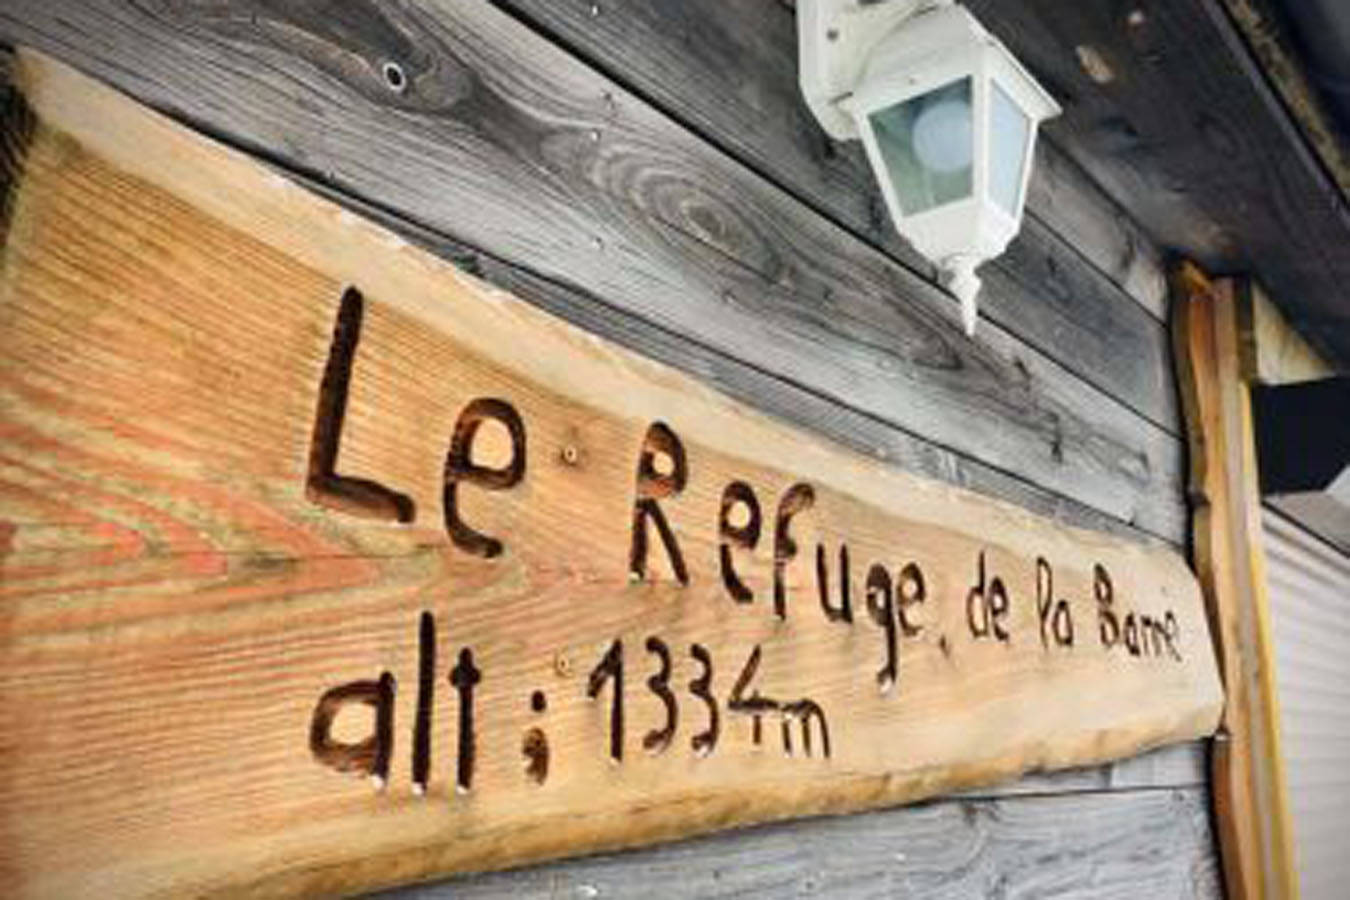 Le Refuge de la Barre
alt : 1334m